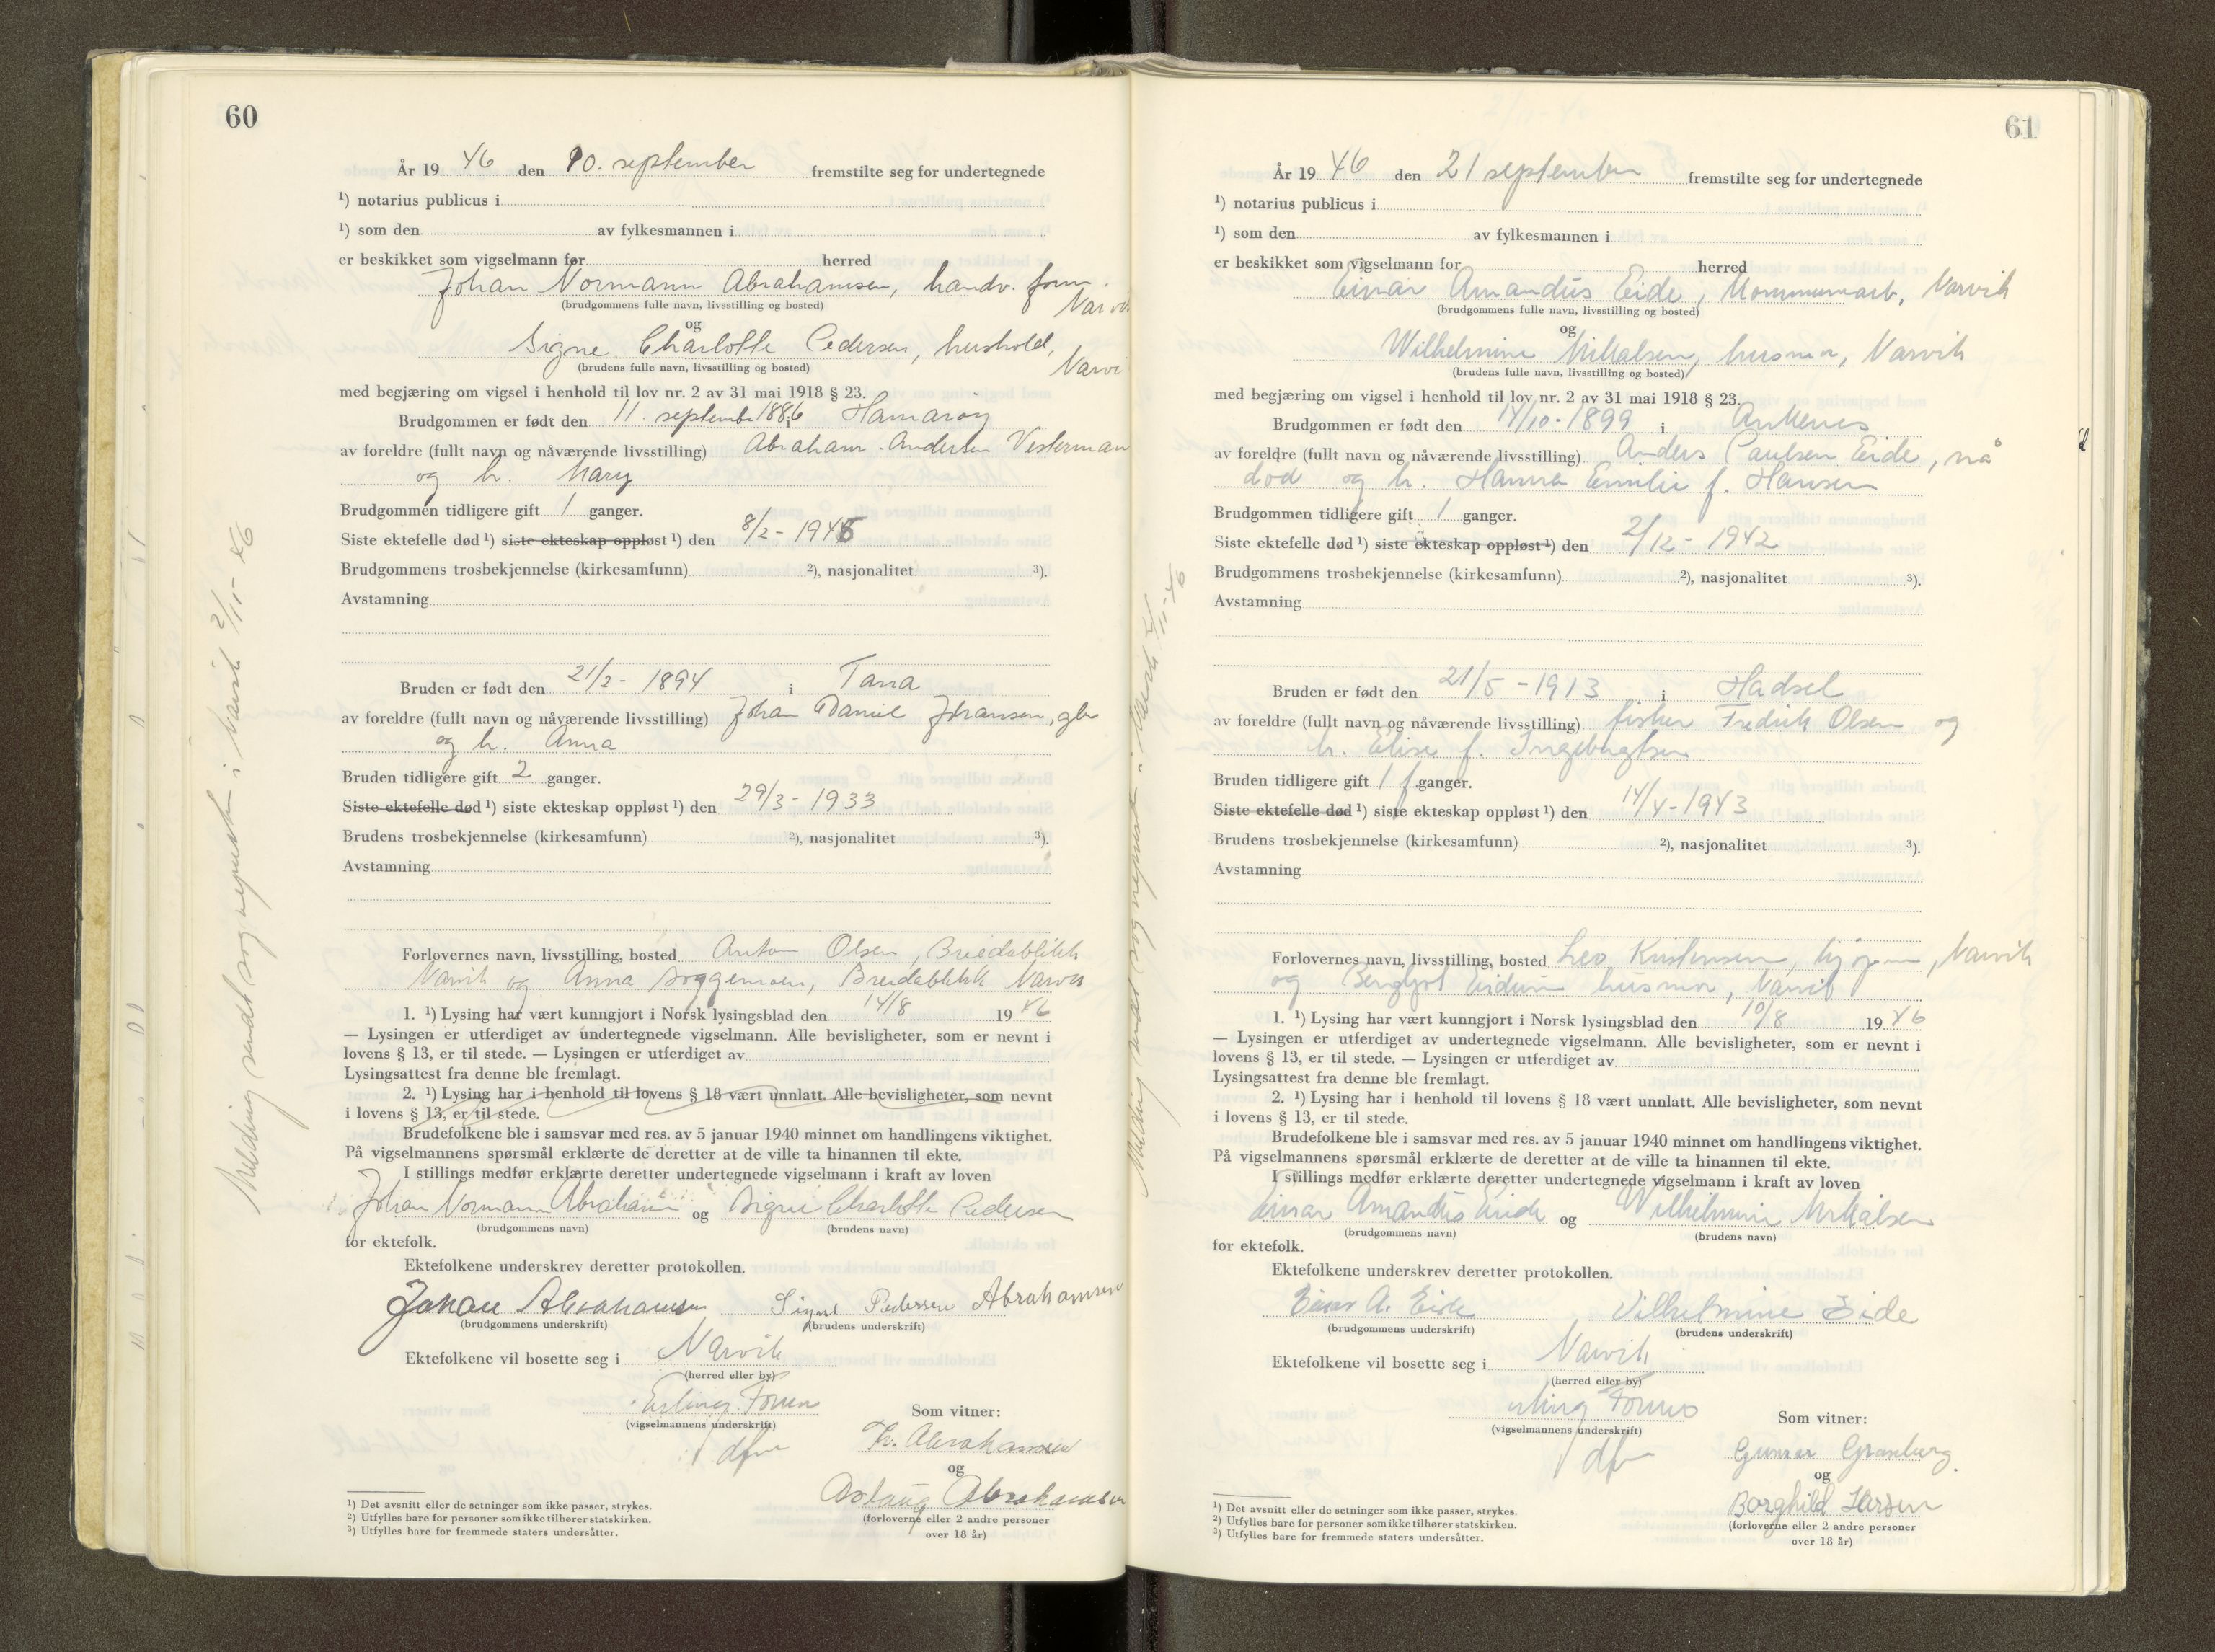 60
År 19 46 den 10. september fremstilte seg for undertegnede
¹) notarius publicus i
¹) som den av fylkesmannen i
er beskikket som vigselmann for herred
Johan Normann Abrahamsen, handv. form. Narvik
(brudgommens fulle navn, livsstilling og bosted)
og
Signe Charlotte Pedersen, hushold, Narvi
(brudens fulle navn, livsstilling og bosted)
med begjæring om vigsel i henhold til lov nr. 2 av 31 mai 1918 § 23.
Brudgommen er født den 11. septembe 1886 i Hamarøy
av foreldre (fullt navn og nåværende livsstilling) Abraham Andersen Vesterman
og h. Mary
Brudgommen tidligere gift 1 ganger.
Siste ektefelle død ¹) siste ekteskap oppløst ¹) den 8/2 - 1945
Brudgommens trosbekjennelse (kirkesamfunn) ²), nasjonalitet ³).
Avstamning
Bruden er født den 21/2 - 1894 i Tana
av foreldre (fullt navn og nåværende livsstilling) Johan Daniel Johansen, gbr
og h. Anna
Bruden tidligere gift 2 ganger.
Siste ektefelle død ¹) siste ekteskap oppløst ¹) den 29/3 - 1933
Brudens trosbekjennelse (kirkesamfunn) ²), nasjonalitet ³).
Avstamning
Forlovernes navn, livsstilling, bosted Anton Olsen, Breidablikk
Narvik og Anna Breidablikk Narvik
1. ¹) Lysing har vært kunngjort i Norsk lysingsblad den 14/8 19 46
— Lysingen er utferdiget av undertegnede vigselmann. Alle bevisligheter, som er nevnt i
lovens § 13, er til stede. — Lysingen er utferdiget av
Lysingsattest fra denne ble fremlagt.
2. ¹) Lysing har i henhold til lovens § 18 vært unnlatt. Alle bevisligheter, som nevnt
i lovens § 13, er til stede.
Brudefolkene ble i samsvar med res. av 5 januar 1940 minnet om handlingens viktighet.
På vigselmannens spørsmål erklærte de deretter at de ville ta hinannen til ekte.
I stillings medfør erklærte deretter undertegnede vigselmann i kraft av loven
Johan Normann Abrahamsen og Signe Charlotte Pedersen
(brudgommens navn) (brudens navn)
for ektefolk.
Ektefolkene underskrev deretter protokollen.
Johan Abrahamsen Signe Pedersen Abrahamsen
(brudgommens underskrift) (brudens underskrift)
Ektefolkene vil bosette seg i Narvik
(herred eller by)
Erling
(vigselmannens underskrift)
dfm
Som vitner:
Th. Abrahamsen
og
Aslaug Abrahamsen
(forloverne eller 2 andre personer
over 18 år)
¹) Det avsnitt eller de setninger som ikke passer, strykes.
²) Utfylles bare for personer som ikke tilhører statskirken.
³) Utfylles bare for fremmede staters undersåtter.
Melding sendt sogneprsten i Narvik 2/11-46
61
År 19 46 den 21 september fremstilte seg for undertegnede
¹) notarius publicus i
¹) som den av fylkesmannen i
er beskikket som vigselmann for herred
Einar Amandus Eide, Kommunearb, Narvik
(brudgommens fulle navn, livsstilling og bosted)
og
Wilhelmine Mikalsen, husmor, Narvik
(brudens fulle navn, livsstilling og bosted)
med begjæring om vigsel i henhold til lov nr. 2 av 31 mai 1918 § 23.
Brudgommen er født den 14/10 - 1899 i Ankenes
av foreldre (fullt navn og nåværende livsstilling) Anders Paulsen Eide, nå
død og h. Hanna Emilie f. Hansen
Brudgommen tidligere gift 1 ganger.
Siste ektefelle død ¹) siste ekteskap oppløst ¹) den 2/12 - 1942
Brudgommens trosbekjennelse (kirkesamfunn) ²), nasjonalitet ³).
Avstamning
Bruden er født den 21/5 - 1913 i Hadsel
av foreldre (fullt navn og nåværende livsstilling) fisker Fredrik Olsen og
h. Elise f. Ingebrigtsen
Bruden tidligere gift 1 ganger.
Siste ektefelle død ¹) siste ekteskap oppløst ¹) den 14/4 - 1943
Brudens trosbekjennelse (kirkesamfunn) ²), nasjonalitet ³).
Avstamning
Forlovernes navn, livsstilling, bosted Leo Kristensen, Narvik
og Bergljot husmor, Narvik
1. ¹) Lysing har vært kunngjort i Norsk lysingsblad den 10/8 19 46
— Lysingen er utferdiget av undertegnede vigselmann. Alle bevisligheter, som er nevnt i
lovens § 13, er til stede. — Lysingen er utferdiget av
Lysingsattest fra denne ble fremlagt.
2. ¹) Lysing har i henhold til lovens § 18 vært unnlatt. Alle bevisligheter, som nevnt
i lovens § 13, er til stede.
Brudefolkene ble i samsvar med res. av 5 januar 1940 minnet om handlingens viktighet.
På vigselmannens spørsmål erklærte de deretter at de ville ta hinannen til ekte.
I stillings medfør erklærte deretter undertegnede vigselmann i kraft av loven
Einar Amandus Eide og Wilhelmine Mikalsen
(brudgommens navn) (brudens navn)
for ektefolk.
Ektefolkene underskrev deretter protokollen.
Einar A. Eide Vilhelmine Eide
(brudgommens underskrift) (brudens underskrift)
Ektefolkene vil bosette seg i Narvik
(herred eller by)
(vigselmannens underskrift)
dfm
Som vitner:
Gunnar Granberg
og
Borghild Larsen
(forloverne eller 2 andre personer
over 18 år)
¹) Det avsnitt eller de setninger som ikke passer, strykes.
²) Utfylles bare for personer som ikke tilhører statskirken.
³) Utfylles bare for fremmede staters undersåtter.